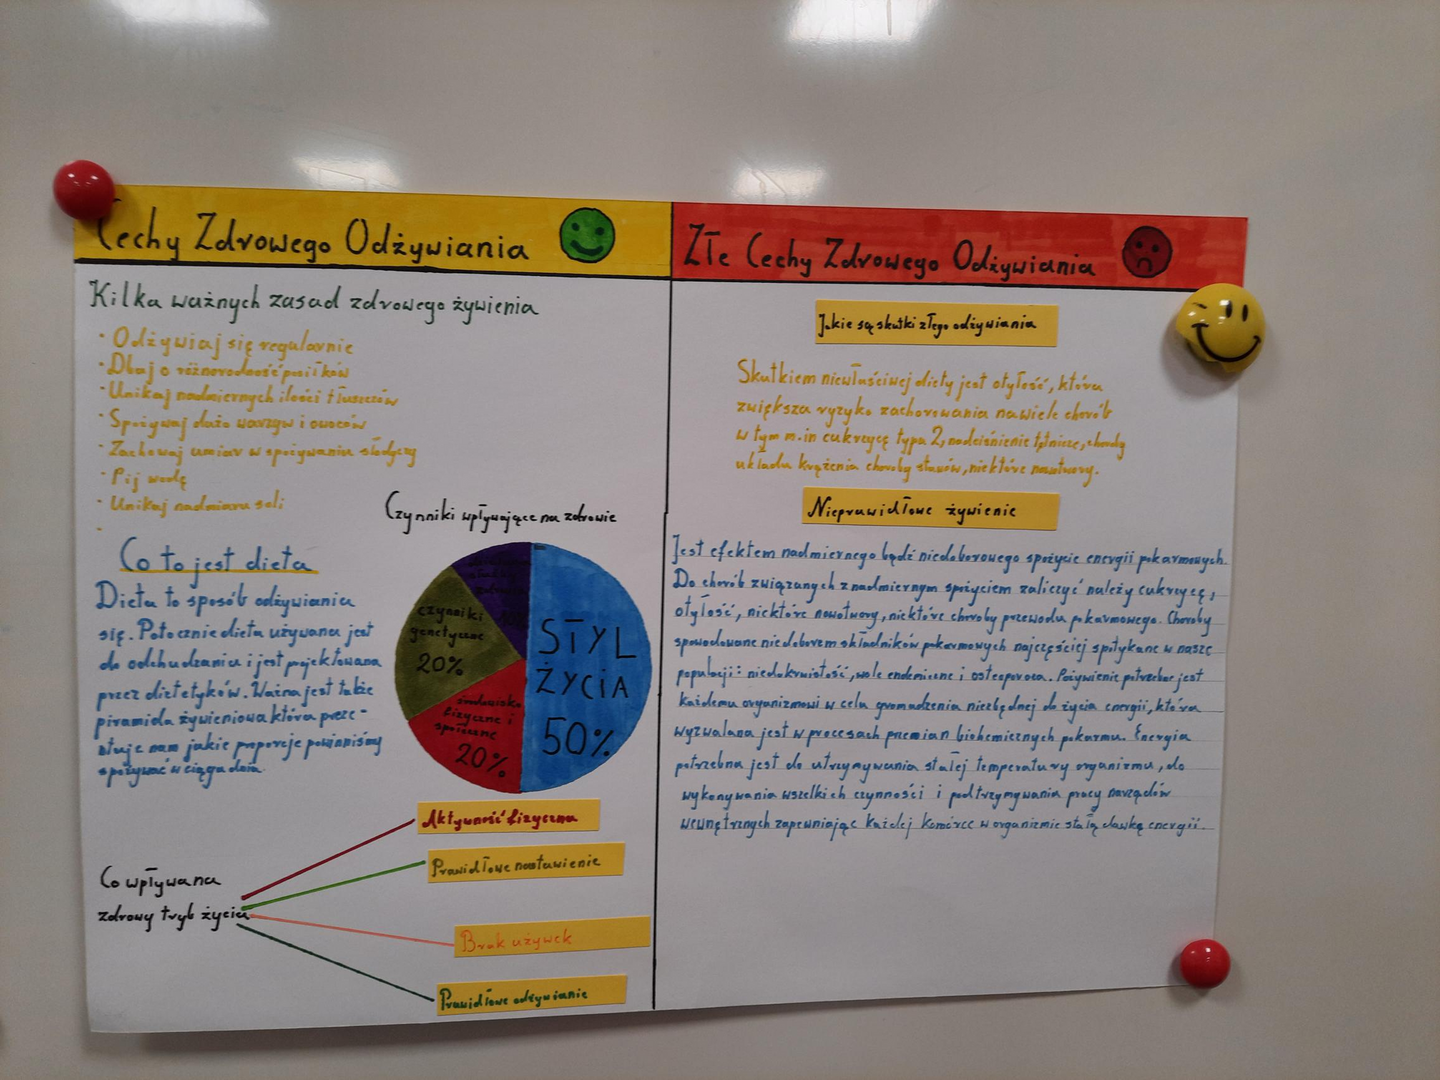 Cechy Zdrowego Odżywiania
Kilka ważnych zasad zdrowego żywienia
· Odżywiaj się regularnie
· Dbaj o różnorodność posiłków
· Unikaj nadmiernych ilości tłuszczów
· Spożywaj dużo warzyw i owoców
· Zachowaj umiar w spożywaniu słodyczy
· Pij wodę
· Unikaj nadmiaru soli
Co to jest dieta
Dieta to sposób odżywiania
się. Potocznie dieta używana jest
do odchudzania i jest projektowana
przez dietetyków. Ważna jest także
piramida żywieniowa która preze-
ntuje nam jakie proporcje powinniśmy
spożywać w ciągu dnia.
Czynniki wpływające na zdrowie
STYL
ŻYCIA
50%
czynniki
genetyczne
20%
środowisko
fizyczne i
społeczne
20%
Co wpływa na
zdrowy tryb życia
Aktywność fizyczna
Prawidłowe nastawienie
Brak używek
Prawidłowe odżywianie
Złe Cechy Zdrowego Odżywiania
Jakie są skutki złego odżywiania
Skutkiem niewłaściwej diety jest otyłość, która
zwiększa ryzyko zachorowania na wiele chorób
w tym m.in cukrzycę typu 2, nadciśnienie tętnicze, choroby
układu krążenia choroby stawów, niektóre nowotwory.
Nieprawidłowe żywienie
Jest efektem nadmiernego bądź niedoborowego spożycie energii pokarmowych.
Do chorób związanych z nadmiernym spożyciem zaliczyć należy cukrzycę,
otyłość, niektóre nowotwory, niektóre choroby przewodu pokarmowego. Choroby
spowodowane niedoborem składników pokarmowych najczęściej spotykane w nasze
populacji: niedokrwistość, wole endemiczne i osteoporoza. Pożywienie potrzebne jest
każdemu organizmowi w celu gromadzenia niezbędnej do życia energii, która
wyzwalana jest w procesach przemian biohemicznych pokarmu. Energia
potrzebna jest do utrzymywania stałej temperatury organizmu, do
wykonywania wszelkich czynności i podtrzymywania pracy narządów
wewnętrznych zapewniając każdej komórce w organizmie stałą dawkę energii.